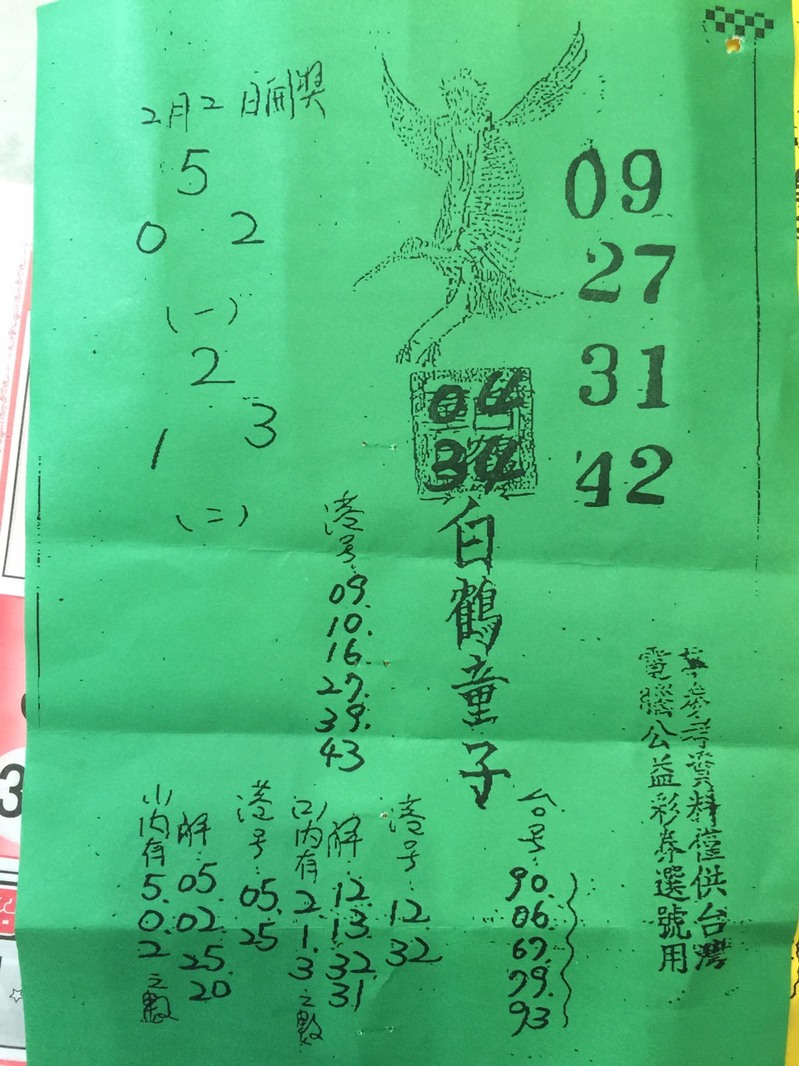 2月2日開獎
5
0 2
(一)
2
1 3
(二)
09
27
31
42
04
34
白鶴童子
港号:
09.
10.
16.
27.
39.
43
參考資料僅供台灣
電腦公益彩券選號用
台号:
90.
06.
67.
79.
93
港号:
12.
32
解:
12.
13.
32.
31
(二)內存
2.
1.
3
之數
港号:
05.
25
解:
05.
02.
25.
20
內存
5.
0.
2
之數